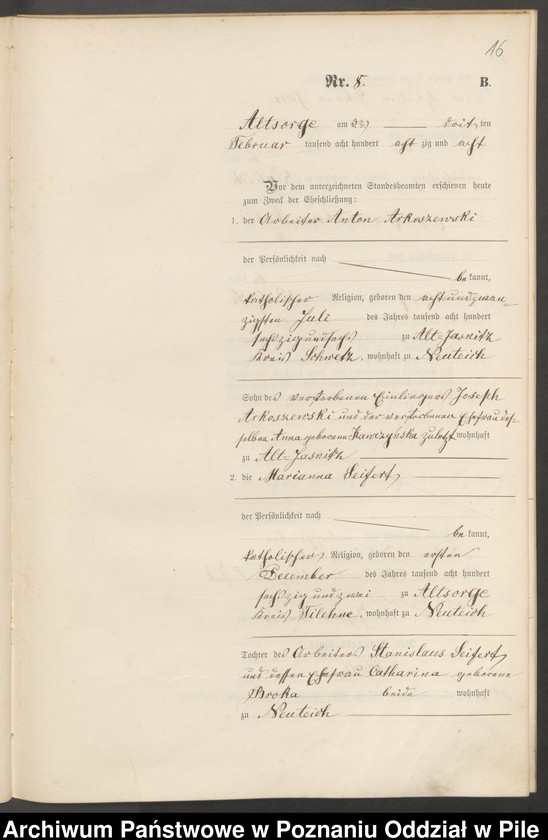 16
Nr. 8.
B.
Altsorge am drit ten
Februar tausend acht hundert acht zig und acht
Vor dem unterzeichneten Standesbeamten erschienen heute
zum Zweck der Eheschließung:
1. der Arbeiter Anton Arkoszewski
der Persönlichkeit nach
be kannt,
katholischer Religion, geboren den achtundzwan-
zigsten Juli des Jahres tausend acht hundert
sechszigundsechs zu Alt-Jasnitz
Kreis Schwetz, wohnhaft zu Neuteich
Sohn des verstorbenen Einliegers Joseph
Arkoszewski und der verstorbenen Ehefrau des-
selben Anna geborene Kawczynska zuletzt wohnhaft
zu Alt-Jasnitz
2. die Marianna Seifert
der Persönlichkeit nach
be kannt,
katholischer Religion, geboren den ersten
Dezember des Jahres tausend acht hundert
sechszig und zwei zu Altsorge
Kreis Filehne, wohnhaft zu Neuteich
Tochter des Arbeiters Stanislaus Seifert
und dessen Ehefrau Catharina geborene
beide wohnhaft
zu Neuteich
Archiwum Państwowe w Poznaniu Oddział w Pile